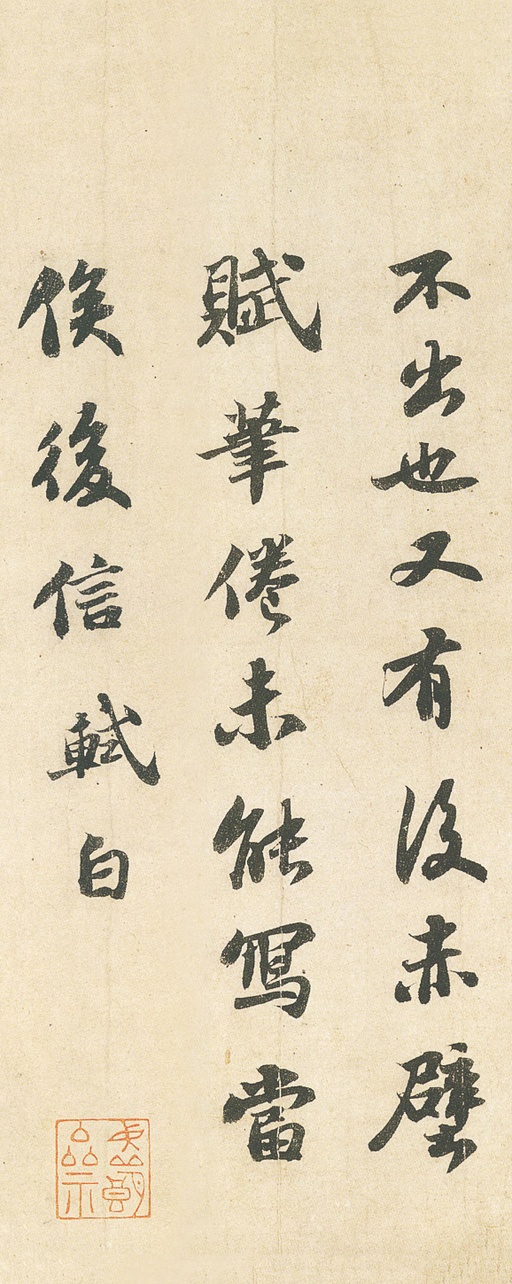 不出也又有後赤壁
賦筆倦未能寫當
俟後信軾白